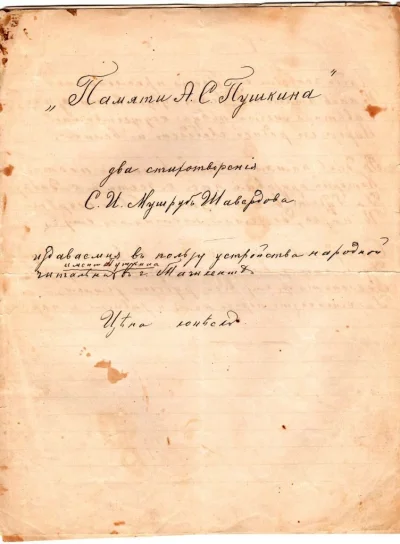 „Памяти А. С. Пушкина“
два стихотворенія
С. И. Мушрубъ Шавердова
издаваемыя въ пользу устройства народной
имени Пушкина
читальни въ г. Ташкентѣ
Цѣна